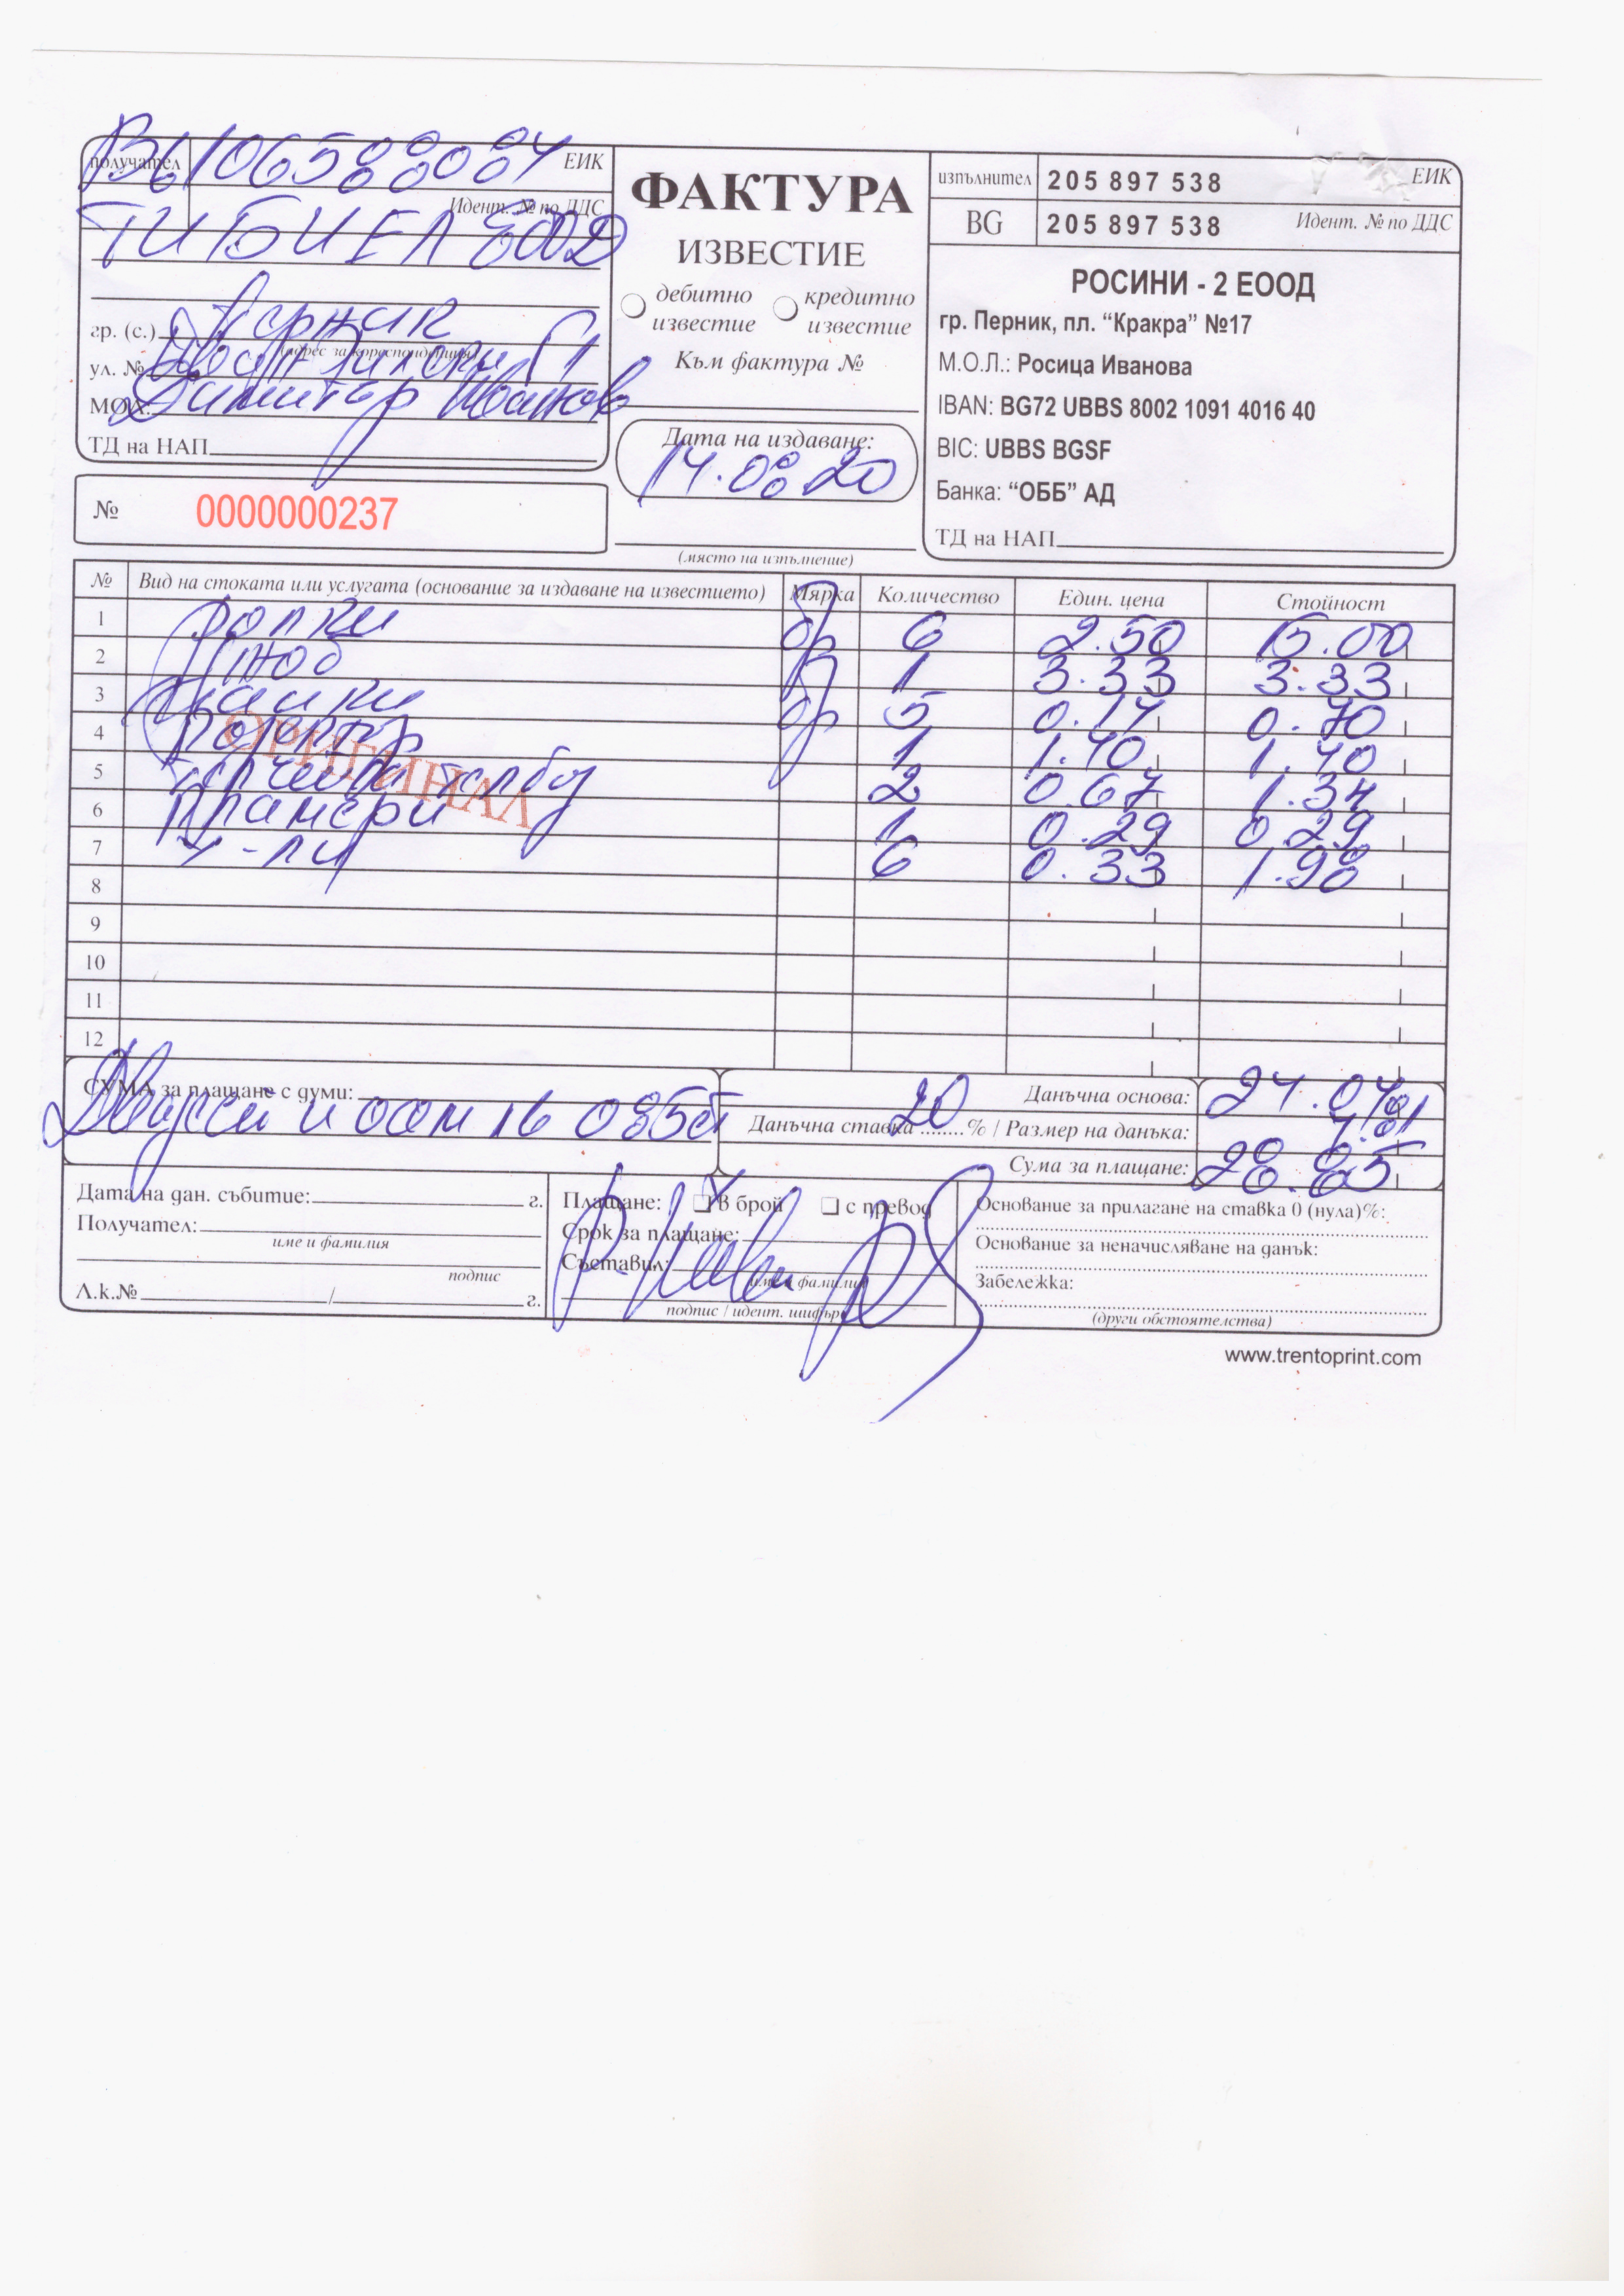 получател BG106588084 ЕИК
Идент. № по ДДС
ТИБИЕЛ ЕООД
гр. (с.) Перник
(адрес за кореспонденция)
ул. №
МОЛ: Димитър Иванов
ТД на НАП
№ 0000000237
ФАКТУРА
ИЗВЕСТИЕ
дебитно известие
кредитно известие
Към фактура №
Дата на издаване:
14.08.20
(място на изпълнение)
изпълнител 205 897 538 ЕИК
BG 205 897 538 Идент. № по ДДС
РОСИНИ - 2 ЕООД
гр. Перник, пл. “Кракра” №17
М.О.Л.: Росица Иванова
IBAN: BG72 UBBS 8002 1091 4016 40
BIC: UBBS BGSF
Банка: “ОББ” АД
ТД на НАП
№ Вид на стоката или услугата (основание за издаване на известието) Мярка Количество Един. цена Стойност
1 ролки бр 6 2.50 15.00
2 1 3.33 3.33
3 гайки бр 5 0.14 0.70
4 1 1.40 1.40
5 2 0.67 1.34
6 1 0.29 0.29
7 6 0.33 1.98
8
9
10
11
12
ОРИГИНАЛ
СУМА за плащане с думи:
Двадесет и осем лв 085ст
Данъчна основа: 24.04
Данъчна ставка 20 % / Размер на данъка: 4.81
Сума за плащане: 28.85
Дата на дан. събитие: г.
Получател:
име и фамилия
подпис
Л.к.№ / г.
Плащане: в брой с превод
Срок за плащане:
Съставил:
име и фамилия
подпис / идент. шифър
Основание за прилагане на ставка 0 (нула)%:
Основание за неначисляване на данък:
Забележка:
(други обстоятелства)
www.trentoprint.com